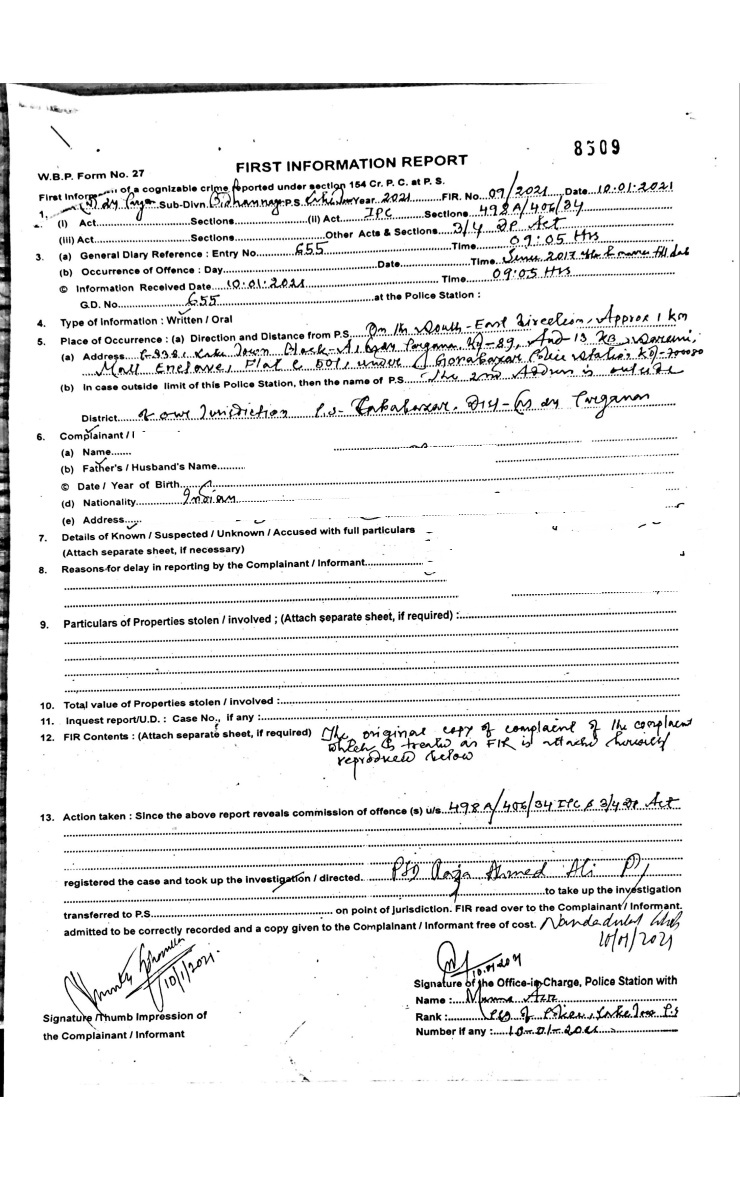 8509
W.B.P. Form No. 27
FIRST INFORMATION REPORT
First Inform of a cognizable crime reported under section 154 Cr. P. C. at P. S.
1. (N) 24 Sub-Divn. Bidhannagar P.S. Year 2021 FIR. No 09/2021 Date 10.01.2021
(i) Act Sections (ii) Act IPC Sections 498A/406/34
(iii) Act Sections Other Acts & Sections 3/4 DP Act
3. (a) General Diary Reference : Entry No 655 Time 09:05 Hrs
(b) Occurrence of Offence : Day Date Time Since 2017
© Information Received Date 10.01.2021 Time 09:05 Hrs
G.D. No 655 at the Police Station :
4. Type of Information : Written / Oral
5. Place of Occurrence : (a) Direction and Distance from P.S. On the South-East Direction, Approx 1 km
(a) Address Lake Town Block-A, Kol-89, And 13 KB
Mall Enclave, Flat 501, under Police Station
(b) In case outside limit of this Police Station, then the name of P.S. The 2nd Address is outside
District of our Jurisdiction P.S- Dist- (N) 24 Parganas
6. Complainant / I
(a) Name
(b) Father's / Husband's Name
© Date / Year of Birth
(d) Nationality Indian
(e) Address
7. Details of Known / Suspected / Unknown / Accused with full particulars
(Attach separate sheet, if necessary)
8. Reasons for delay in reporting by the Complainant / Informant
9. Particulars of Properties stolen / involved ; (Attach separate sheet, if required) :
10. Total value of Properties stolen / involved :
11. Inquest report/U.D. : Case No., if any :
12. FIR Contents : (Attach separate sheet, if required) The original copy of complaint of the complaint
which is treated as FIR is attached
reproduced below
13. Action taken : Since the above report reveals commission of offence (s) u/s. 498A/406/34 IPC & 3/4 DP Act
registered the case and took up the investigation / directed. Ahmed Ali
to take up the investigation
transferred to P.S. on point of jurisdiction. FIR read over to the Complainant / Informant.
admitted to be correctly recorded and a copy given to the Complainant / Informant free of cost.
10/01/2021
10/1/2021.
10.01.2021
Signature of the Office-in-Charge, Police Station with
Name :
Signature /Thumb Impression of
Rank : of Police, Lake Town P.S
the Complainant / Informant
Number if any : 10-01-2021